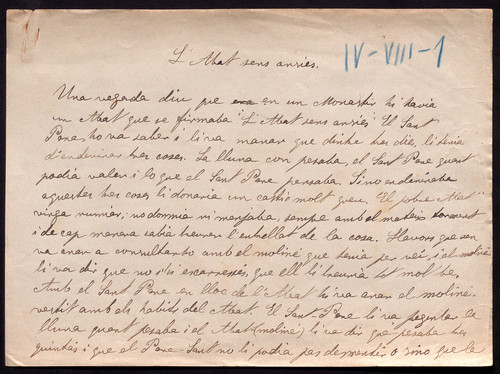 L'Abat sens ansies.
IV-VIII-1
Una vegada diu que en un Monastir hi havia
un Abat que se firmaba "L'Abat sens ansies" El Sant
Pare, ho va saber i li va manar que dintre tres dies, li tenia
d'endevinar tres coses. La lluna com pesaba, el Sant Pare quant
podia valer i lo que el Sant Pare pensaba. Si no endevinaba
aquestes tres coses li donaria un castic molt greu. El pobre Abat
vinga rumiar, no dormia ni menjaba, sempre amb el mateix
i de cap manera sabia treuren l'entrellat de la cosa. Llavors que sen
va anar a consultarho amb el moliné que tenia per veí, i el moliné
li va dir que no s'hi escarrassés, que ell li treuria tot molt be.
Amb el Sant Pare en lloc de l'Abat hi va anar el moliné.
vestit amb els habits del Abat. El Sant Pare li va preguntar la
lluna quant pesaba i el Abat (moliné) li va dir que pesaba tres
quintás i que el Pare-Sant no li podia pas desmentir o sino que la